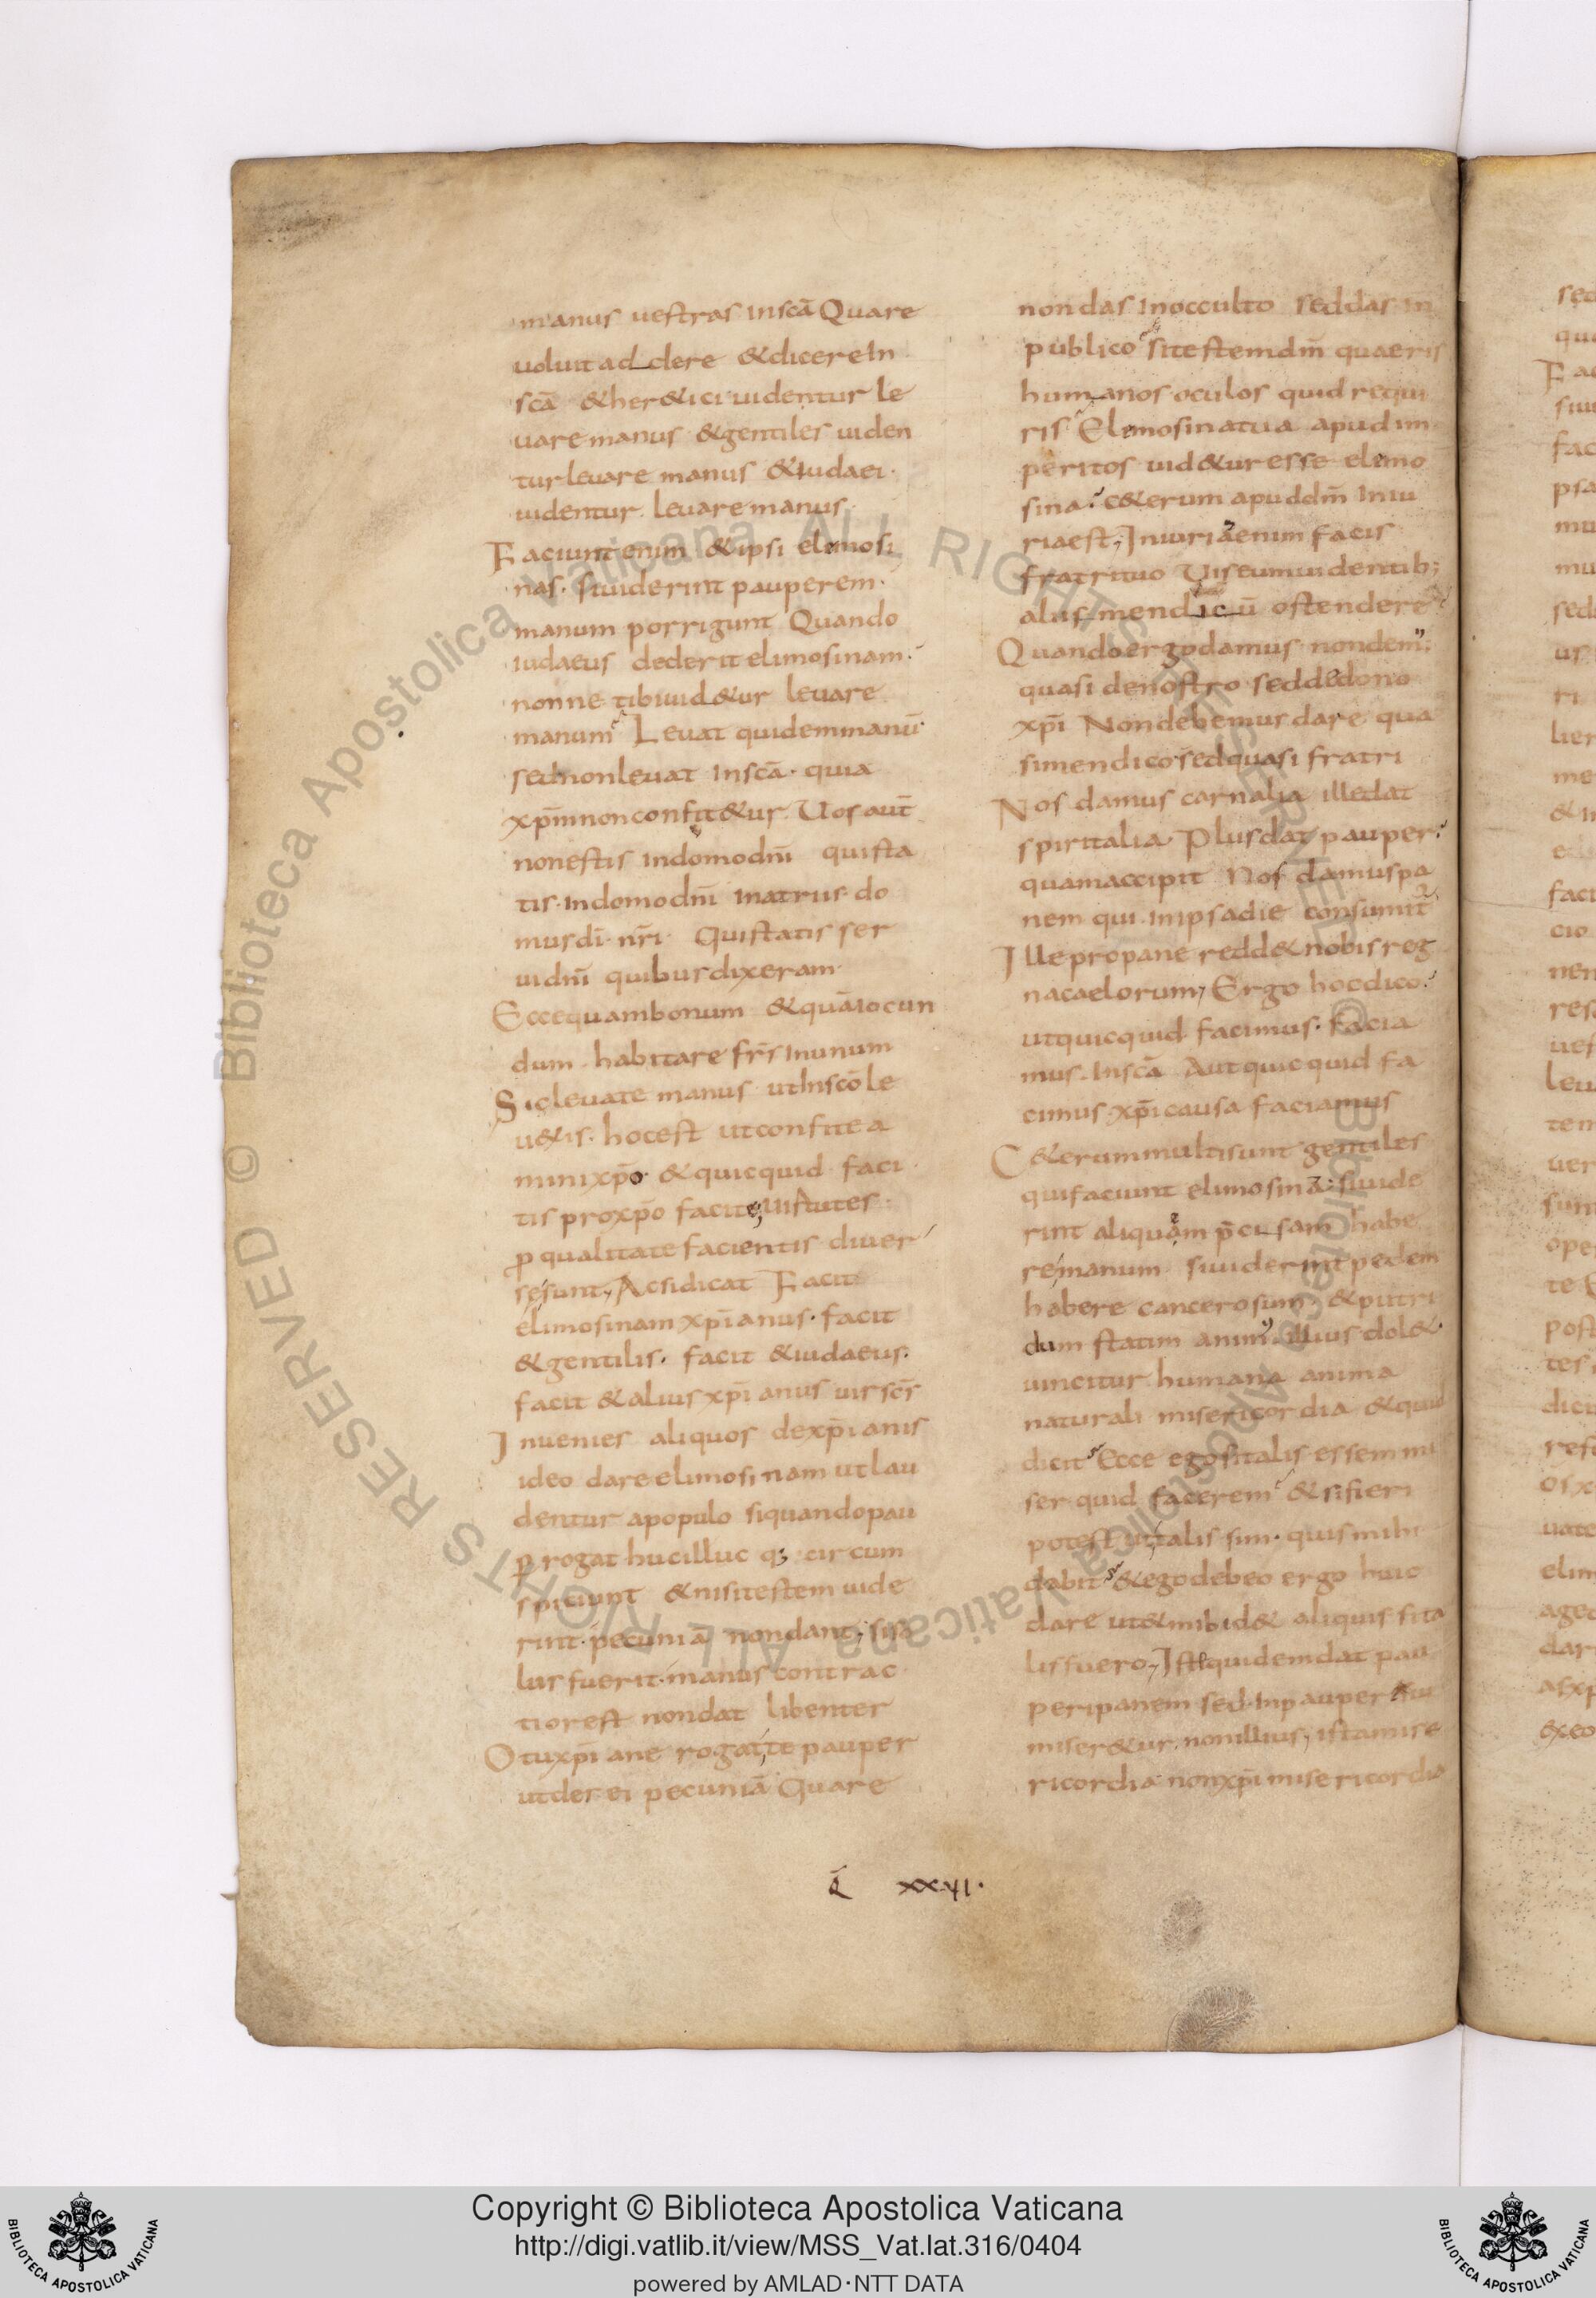 manus uestras inscā Quare
uoluit addere &dicere In
scā &her&ici uidentur le
uare manus &gentiles uiden
tur leuare manus &iudaei·
uidentur leuare manus
Faciunt enim &ipsi elimosi
nas· Siuiderint pauperem·
manum porrigunt Quando
iudaeus dederit elimosinam·
nonne tibiuid&ur leuare
manum Leuat quidemmanū·
sednonleuat inscā· quia
xp̄mnonconfit&ur Uos aut̄
nonestis indomodn̄i quista
tis· indomodn̄i inatriis· do
musdī· nr̄i· Quistatis ser
uidn̄i quibusdixeram·
Eccequambonum &quāiocun
dum· habitare fr̄s inunum
Sicleuate manus utInscōle
u&is· hocest utconfitea
minixp̄o· &quicquid faci
tis proxp̄o facite, uirtutes·
p qualitate facientis diuer
sesunt, Acsidicat Facit
elimosinam xp̄ianus· facit
&gentilis· facit &iudaeus·
facit &alius xp̄ianus uir sc̄s
Inuenies aliquos dexp̄ianis
ideo dare elimosinam utlau
dentur apopulo siquandopau
p rogat hucilluc q; circum
spiciunt &nisitestem uide
rint· pecuniā nondant, siso
lus fuerit· manus contrac
tiorest nondat libenter
Otuxp̄iane rogat,te pauper
utdes ei pecuniā Quare
nondas inocculto seddas in
publico sitestemdm̄ quaeris
humanos oculos quid requi
ris Elemosinatua apudim
peritos uid&uresse elemo
sina· c&erum apuddm̄ iniu
riaest, Iniuriāenim facis
fratrituo Uiseumuidentib;
aliis mendicū ostendere
Quandoergodamus nondem;
quasi denostro seddedono
xp̄i Nondebemus dare qua
simendico sedquasi fratri
Nos damus carnalia illedat
spiritalia· Plusdat pauper·
quamaccipit Nos damuspa
nem qui inipsadie consumit
Ille propane redd&nobisreg
nacaelorum, Ergo hocdico·
utquicquid facimus· facia
mus· inscā Autquicquid fa
cimus xp̄icausa faciamus
C&erummultisunt gentiles
quifaciunt elimosinā· siuide
rint aliquem p̄cisam habe
re,manum· siuiderintpedem
habere cancerosum· &putri
dum statim anim; illius dol&·
uincitur humana anima
naturali misericordia &quid
dicit Ecce egositalis essem mi
ser quid facerem &sifieri
potest ut,talis sim· quis mihi
dabit &egodebeo ergo huic
dare ut&mihid& aliquis sita
lisfuero, Istequidemdat pau
peripanem sed inpaupere sui
miser&ur, nonillius, istamise
ricordia nonxp̄imisericordia
q̄ xxvi·
sed
Copyright © Biblioteca Apostolica Vaticana
http://digi.vatlib.it/view/MSS_Vat.lat.316/0404
powered by AMLAD·NTT DATA
BIBLIOTECA APOSTOLICA VATICANA
BIBLIOTECA APOSTOLICA VATICANA